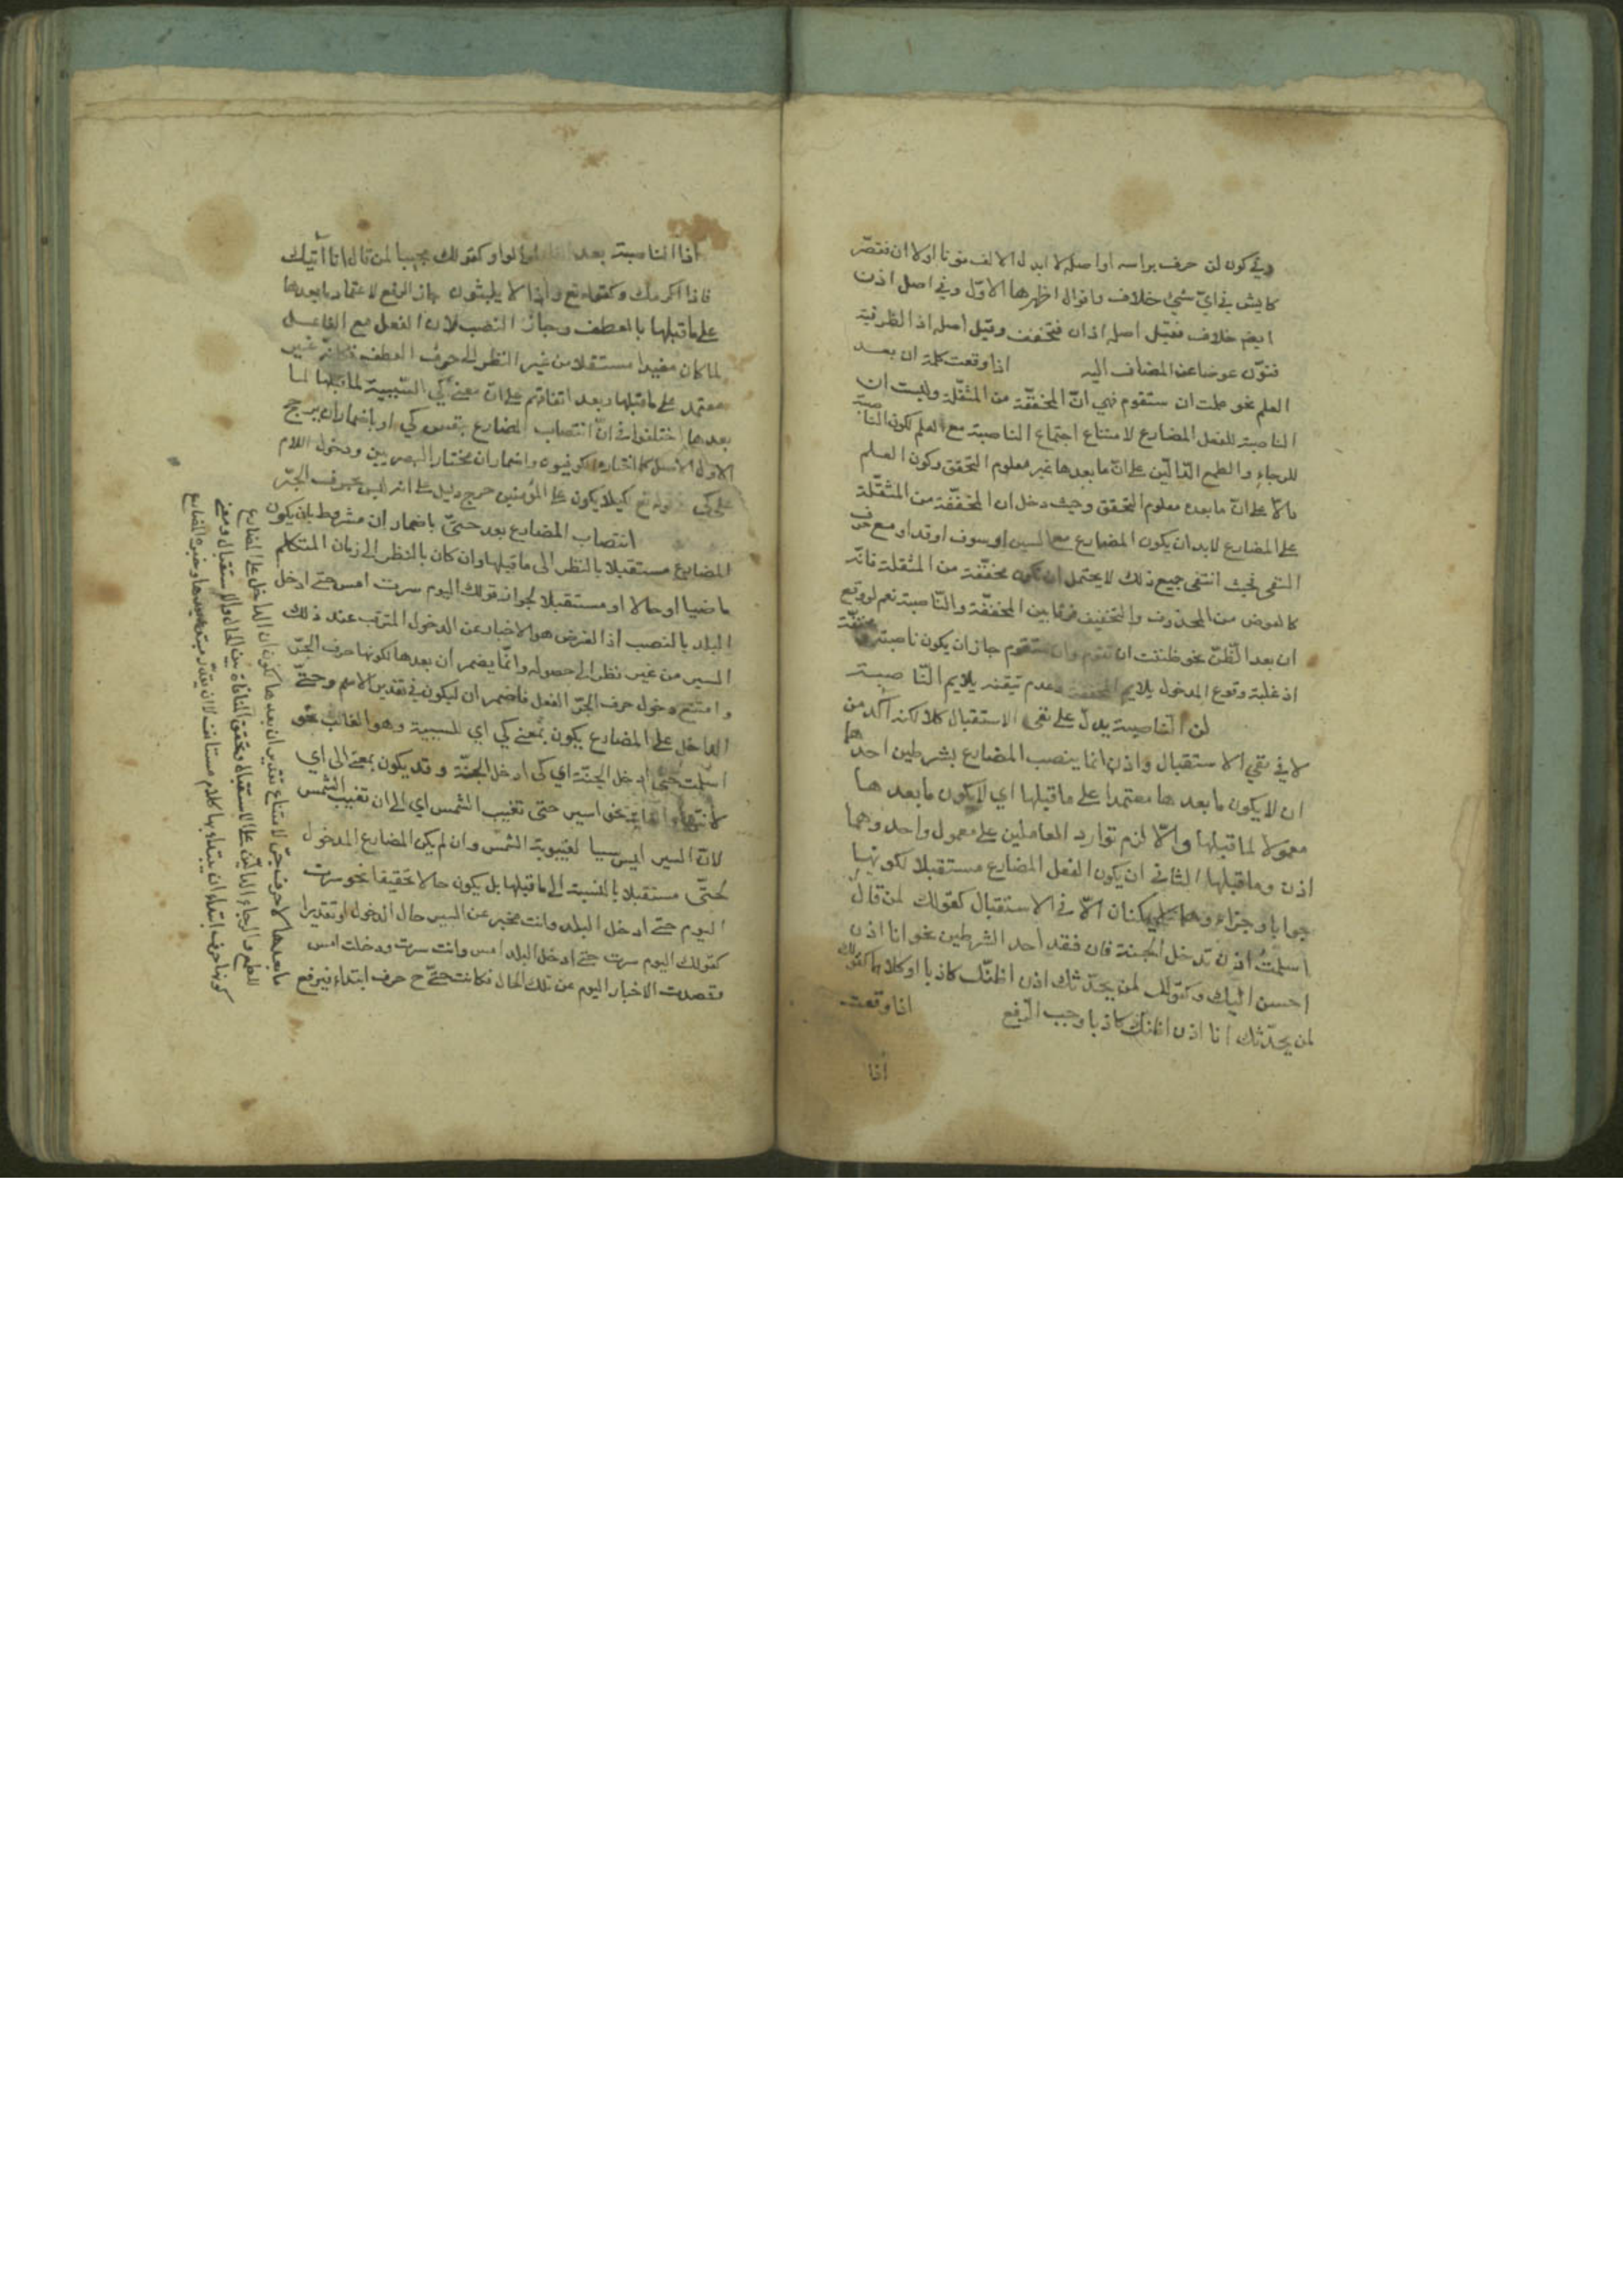 وفي كون لن حرف براسه او اصله لا ابدل الالف نونا اولا ان فقصّر
كايش في ايّ شئ خلاف واقوال اظهرها الاوّل وفي اصل اذن
ايضا خلاف فقيل اصله اذان فتخفف وقيل اصله اذ الظرفية
فنوّن عوضا عن المضاف اليه اذا وقعت كلمة ان بعد
العلم نحو علمت ان ستقوم فهي انّ المخففّة من المثقّلة وليست ان
الناصبة للفعل المضارع لامتناع اجتماع الناصبة مع العلم لكون الناصبة
للرجاء والطمع الدّالّين على انّ ما بعدها غير معلوم التحقق وكون العلم
دالّا على انّ ما بعده معلوم التحقق وحيث دخل ان المخففّة من المثقّلة
على المضارع لابد ان يكون المضارع مع السين او سوف او قد او مع حرف
النفى فحيث انتفى جميع ذلك لا يحتمل ان تكون مخففّة من المثقلة فانّه
كالعوض من المحذوف والتخفيف فرقا بين المخففّة والنّاصبة نعم لو وقع
ان بعد الظّنّ نحو ظننت ان تقوم وان ستقوم جاز ان يكون ناصبة و مخففّة
اذ غلبة وقوع المدخول يلايم المخففة وعدم تيقنه يلايم النّاصبة
لن النّاصبة يدلّ على نفى الاستقبال كلا لكنه اكد من
لا في نفي الاستقبال واذن انما ينصب المضارع بشرطين احدهما
ان لا يكون ما بعدها معتمدا على ما قبلها اي لا يكون ما بعدها
معمولا لما قبلها والّا لزم توارد العاملين على معمول واحد وهما
اذن وما قبلها الثاني ان يكون الفعل المضارع مستقبلا لكونها
جوابا وجزاء وهما لا يمكنان الّا في الاستقبال كقولك لمن قال
اسلمت اذن تدخل الجنة فان فقد احد الشرطين نحو انا اذن
احسن اليك وكقولك لمن يحدّثك اذن اظنّك كاذبا او كلاهما كقولك
لمن يحدّثك انا اذن اظنك كاذبا وجب الرّفع اذا وقعت
اذا
اذا الناصبة بعد الواو كقولك مجيبا لمن قال انا آتيك
فاذا اكرمك وكقوله تع واذا لا يلبثون جاز الرفع لاعتماد ما بعدها
على ما قبلها بالعطف وجاز النصب لان الفعل مع الفاعل
لما كان مفيدا مستقلا من غير النظر الى حرف العطف فكانّه غير
معتمد على ما قبلها وبعد اتفاقهم على انّ معنى كي السّببية لما قبلها لما
بعدها اختلفوا في انّ انتصاب المضارع بنفس كي او باضمار ان يرجح
الاول الاصل كما اختاره الكوفيون واضمار ان مختار البصريين ودخول اللام
على كي قوله تع كيلا يكون على المؤمنين حرج دليل على انه ليس بحرف الجرّ
انتصاب المضارع بعد حتىّ باضمار ان مشروط بان يكون
المضارع مستقبلا بالنظر الى ما قبلها وان كان بالنظر الى زمان المتكلم
ماضيا او حالا او مستقبلا لجواز قولك اليوم سرت امس حتى ادخل
البلد بالنصب اذ الغرض هو الاخبار عن الدخول المترتب عند ذلك
السير من غير نظر الى حصوله وانّما يضمر ان بعدها لكونها حرف الجرّ
وامتنع دخول حرف الجرّ الفعل فاضمر ان ليكون في تقدير الاسم وحتىّ
الداخل على المضارع يكون بمعنى كي اي للسببية وهو الغالب نحو
اسلمت حتى ادخل الجنّة اي كى ادخل الجنّة وقد يكون بمعنى الى اي
لانتهاء الغاية نحو اسير حتى تغيب الشمس اي الى ان تغيب الشمس
لانّ السير ليس سببا لغيبوبة الشمس وان لم يكن المضارع المدخول
لحتّى مستقبلا بالنسبة الى ما قبلها بل يكون حالا تحقيقا نحو سرت
اليوم حتى ادخل البلد وانت مخبر عن السير حال الدخول او تقديرا
كقولك اليوم سرت حتى ادخل البلد امس وانت سرت ودخلت امس
فقصدت الاخبار اليوم عن تلك الحال فكانت حتىّ ح حرف ابتداء فيرفع
ما بعدها لا حرف جرّ لامتناع تقدير ان بعدها لكون ان الداخل على المضارع
للطمع والرجاء الدالّين على الاستقبال وتحقق المنافاة بين الحال والاستقبال ومعنى
كونها حرف ابتداء ان يبتداء بها كلام مستانف لا ان يقدّر مبتدأ بعدها وخبره المضارع